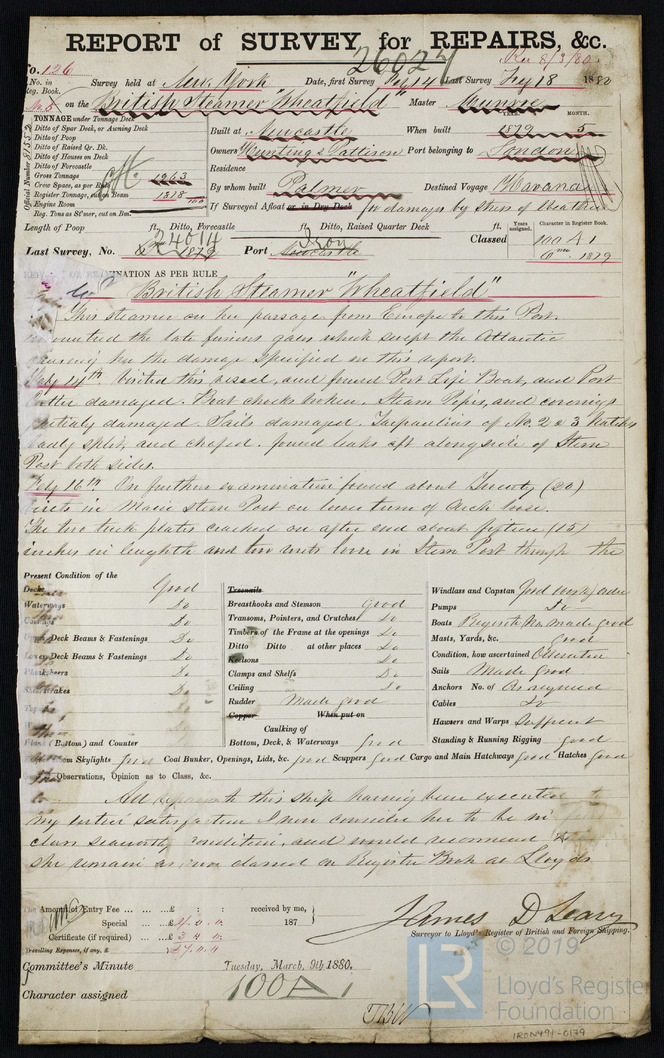 REPORT of SURVEY for REPAIRS, &c.
26027
8/3/80
No. 126
No. in Reg. Book.
Survey held at New York Date, first Survey Feby 14 Last Survey Feby 18 1880
on the British Steamer "Wheatfield" Master Munroe
TONNAGE under Tonnage Deck
Ditto of Spar Deck, or Awning Deck
Ditto of Poop
Ditto of Raised Qr. Dk.
Ditto of Houses on Deck
Ditto of Forecastle
Gross Tonnage 1963
Crew Space, as per Rule
Register Tonnage, cut on Beam 1878
Engine Room
Reg. Tons as St'mer, cut on Bm.
Official Number 81552
YEAR. MONTH.
Built at Newcastle When built 1879 5
Owners Hunting & Pattison Port belonging to London
Residence
By whom built Palmer Destined Voyage Havana
If Surveyed Afloat or in Dry Dock for damages by stress of Weather
Length of Poop ft. Ditto, Forecastle ft. Ditto, Raised Quarter Deck ft.
Years assigned. Character in Register Book.
24014 Iron
Last Survey, No. 1879 Port Newcastle Classed 100 A 1
1879
EXAMINATION AS PER RULE
British Steamer "Wheatfield"
This steamer on her passage from Europe to this Port.
encountered the late furious gales which swept the Atlantic
causing her the damage specified in this report.
Feby 14th Visited this vessel, and found Port Life Boat, and Port
Cutter damaged. Boat chocks broken. Steam Pipes, and coverings
partialy damaged. Sails damaged. Tarpaulins of No. 2 & 3 Hatches
badly split, and chafed. found leaks aft alongside of Stern
Post both sides.
Feby 16th On further examination found about Twenty (20)
rivets in Main Stern Post on lower turn of Arch loose.
The two tuck plates cracked on after end about fifteen (15)
inches in lenghth and two rivets loose in Stern Post through the
Present Condition of the
Decks Good
Waterways Do
Coamings Do
Upper Deck Beams & Fastenings Do
Lower Deck Beams & Fastenings Do
Planksheers Do
Sheerstrakes Do
Topsides Do
Do
Plank (Bottom) and Counter
Treenails
Breasthooks and Stemson Good
Transoms, Pointers, and Crutches Do
Timbers of the Frame at the openings Do
Ditto Ditto at other places Do
Keelsons Do
Clamps and Shelfs Do
Ceiling Do
Rudder Made good
Copper When put on
Caulking of
Bottom, Deck, & Waterways Good
Windlass and Capstan Good working order
Pumps Do
Boats Requisite No. made good
Masts, Yards, &c. Good
Condition, how ascertained
Sails Made Good
Anchors No. of As required
Cables Do
Hawsers and Warps Sufficient
Standing & Running Rigging Good
Skylights Good Coal Bunker, Openings, Lids, &c. Good Scuppers Good Cargo and Main Hatchways Good Hatches Good
Observations, Opinion as to Class, &c.
All repairs to this ship having been executed to
my entire satisfaction I now consider her to be in
class seaworthy condition, and would recommend
she remain as now classed on Register Book as Lloyds
The Amount of Entry Fee ... ... ... £ : : received by me,
Special ... ... £ 4.0.0
187
Certificate (if required) ... £ 3.4.0
Travelling Expenses, if any, £ £7.4.0
James D Leary
Surveyor to Lloyd's Register of British and Foreign Shipping.
Committee's Minute Tuesday, March, 9th, 1880.
Character assigned 100 A 1
LR
© 2019
Lloyd's Register
Foundation
IRON491-0139